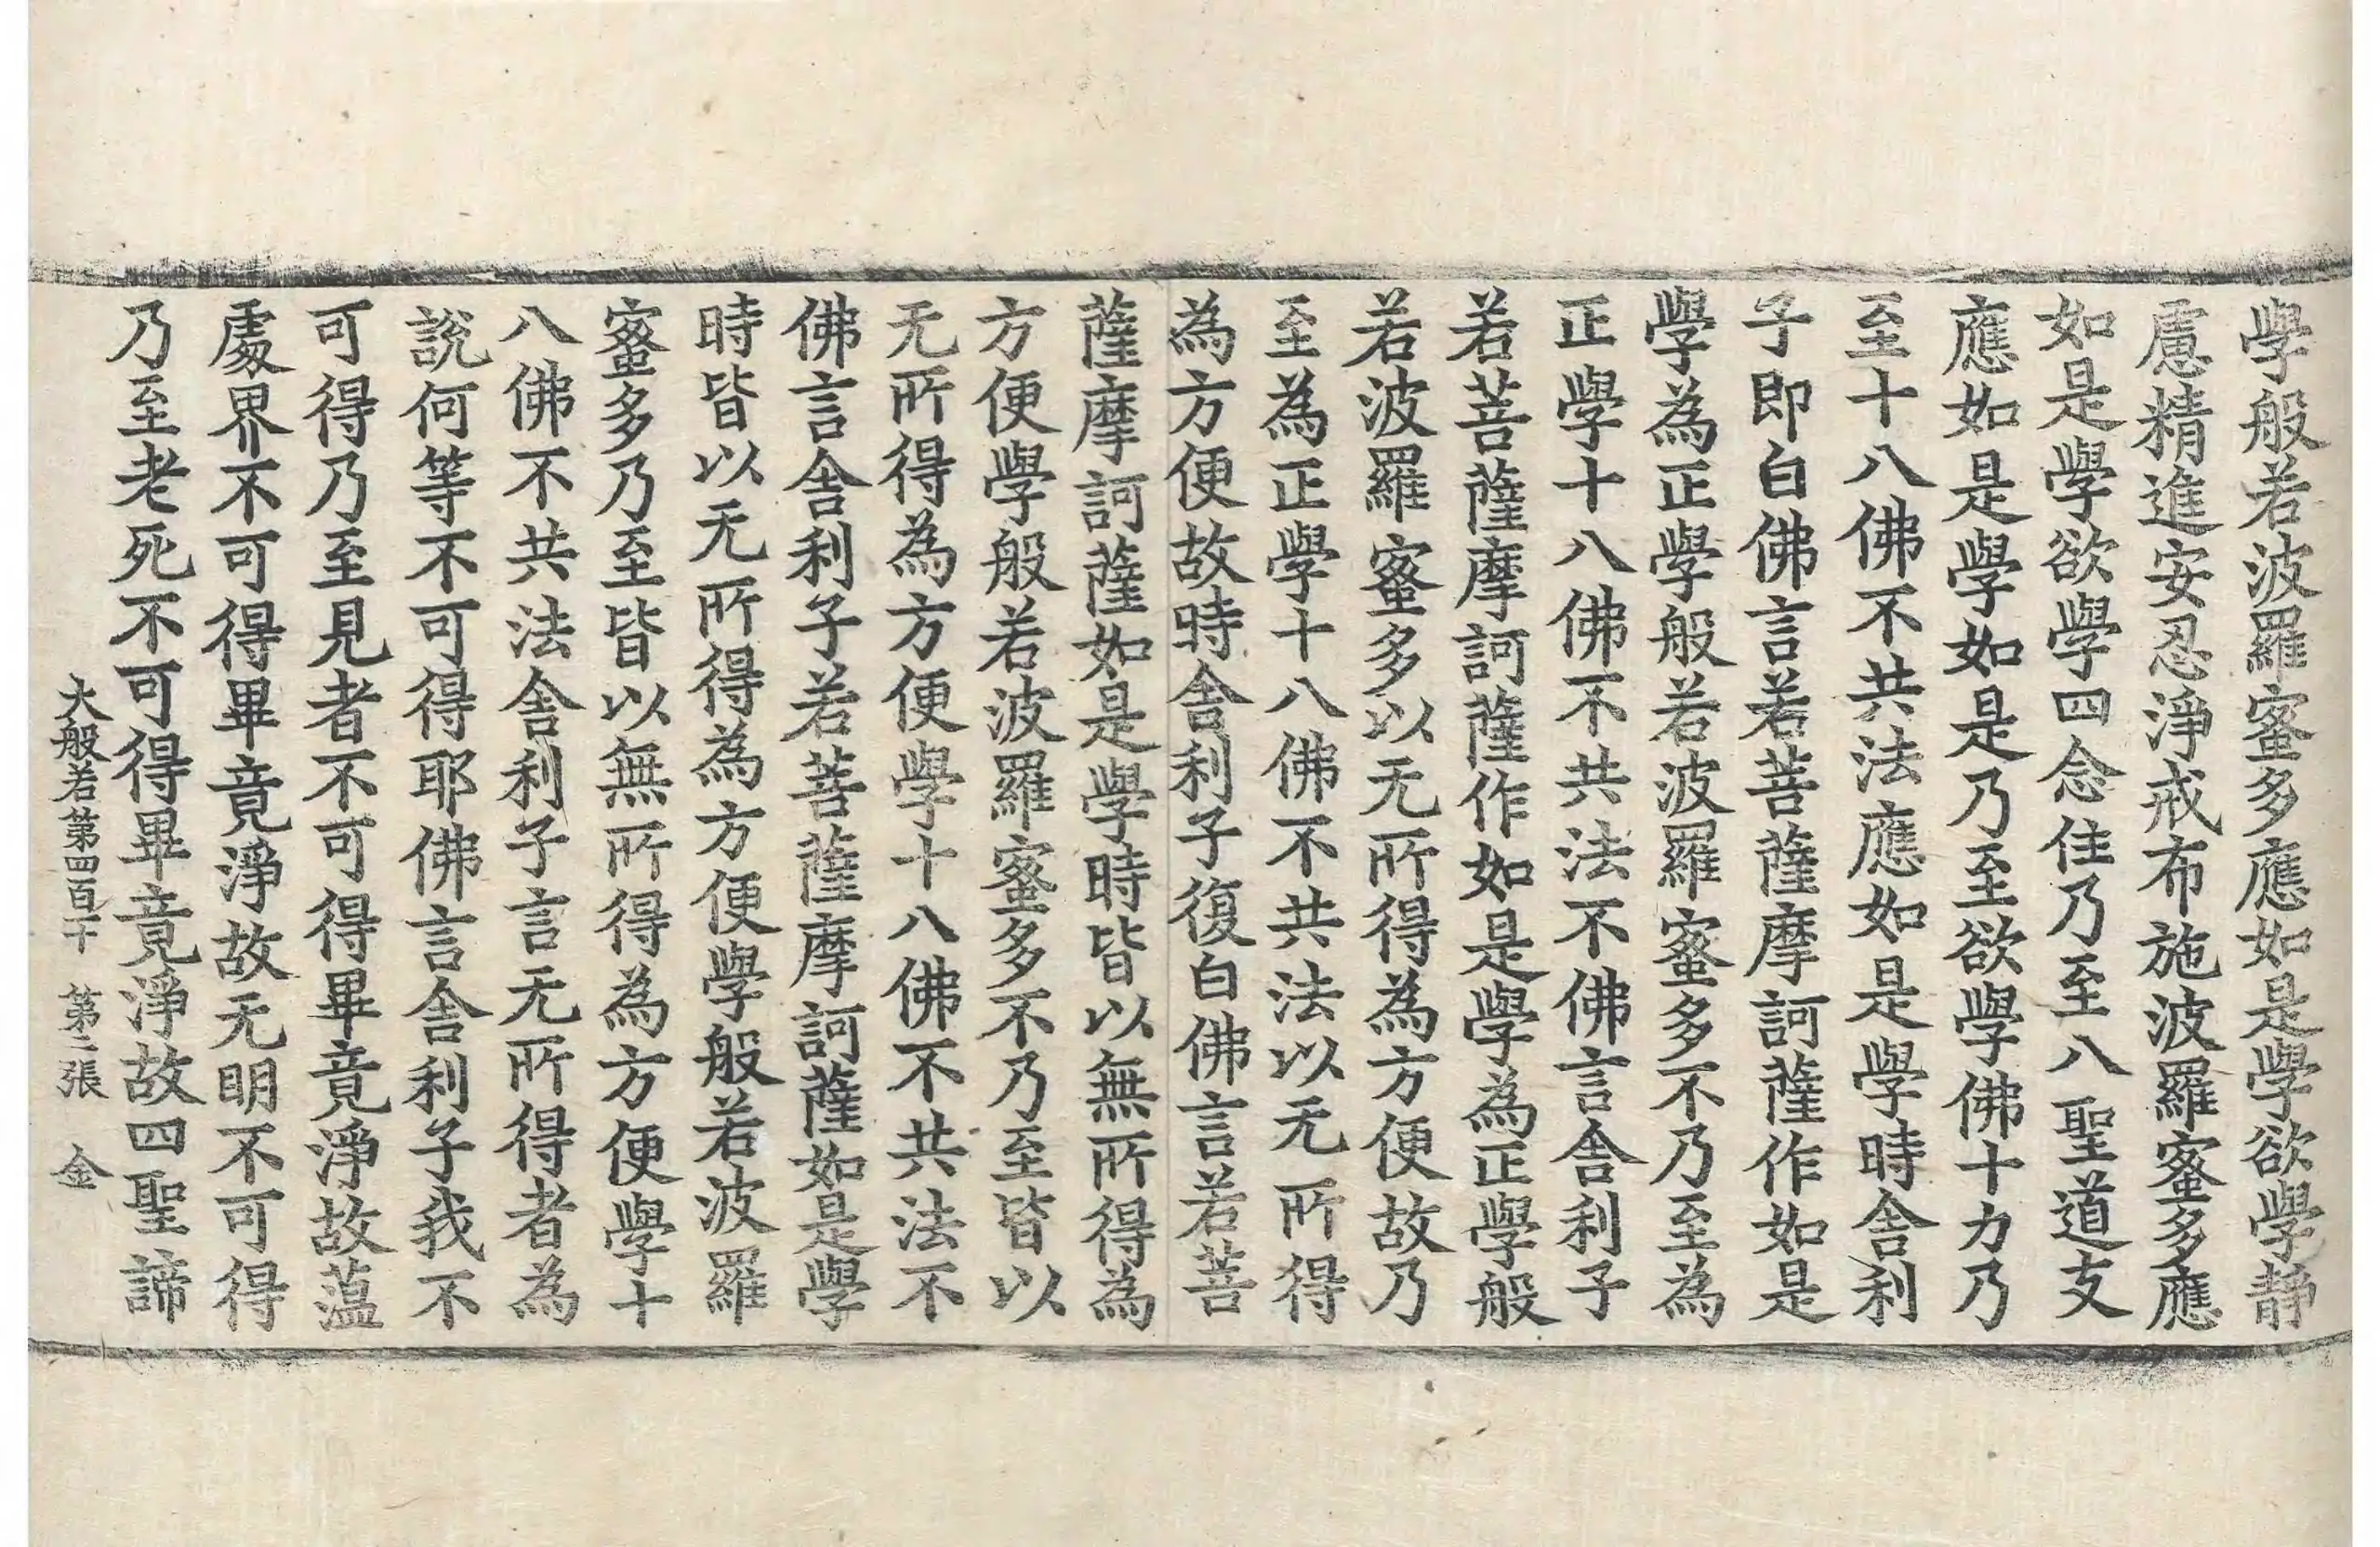 學般若波羅蜜多應如是學欲學静
慮精進安忍淨戒布施波羅蜜多應
如是學欲學四念住乃至八聖道支
應如是學如是乃至欲學佛十力乃
至十八佛不共法應如是學時舍利
子即白佛言若菩薩摩訶薩作如是
學為正學般若波羅蜜多不乃至為
正學十八佛不共法不佛言舍利子
若菩薩摩訶薩作如是學為正學般
若波羅蜜多以无所得為方便故乃
至為正學十八佛不共法以无所得
為方便故時舍利子復白佛言若菩
薩摩訶薩如是學時皆以無所得為
方便學般若波羅蜜多不乃至皆以
无所得為方便學十八佛不共法不
佛言舍利子若菩薩摩訶薩如是學
時皆以无所得為方便學般若波羅
蜜多乃至皆以無所得為方便學十
八佛不共法舍利子言无所得者為
說何等不可得耶佛言舍利子我不
可得乃至見者不可得畢竟淨故蕰
處界不可得畢竟淨故无明不可得
乃至老死不可得畢竟淨故四聖諦
大般若第四百十 第二張 金